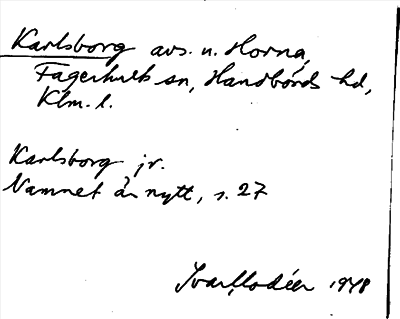 Karlsborg avs. u. Horna,
Fagerhult sn, Handbörds hd,
Klm. l.
Karlsborg jr.
Namnet är nytt, s. 27
Ivar Modéer 1948